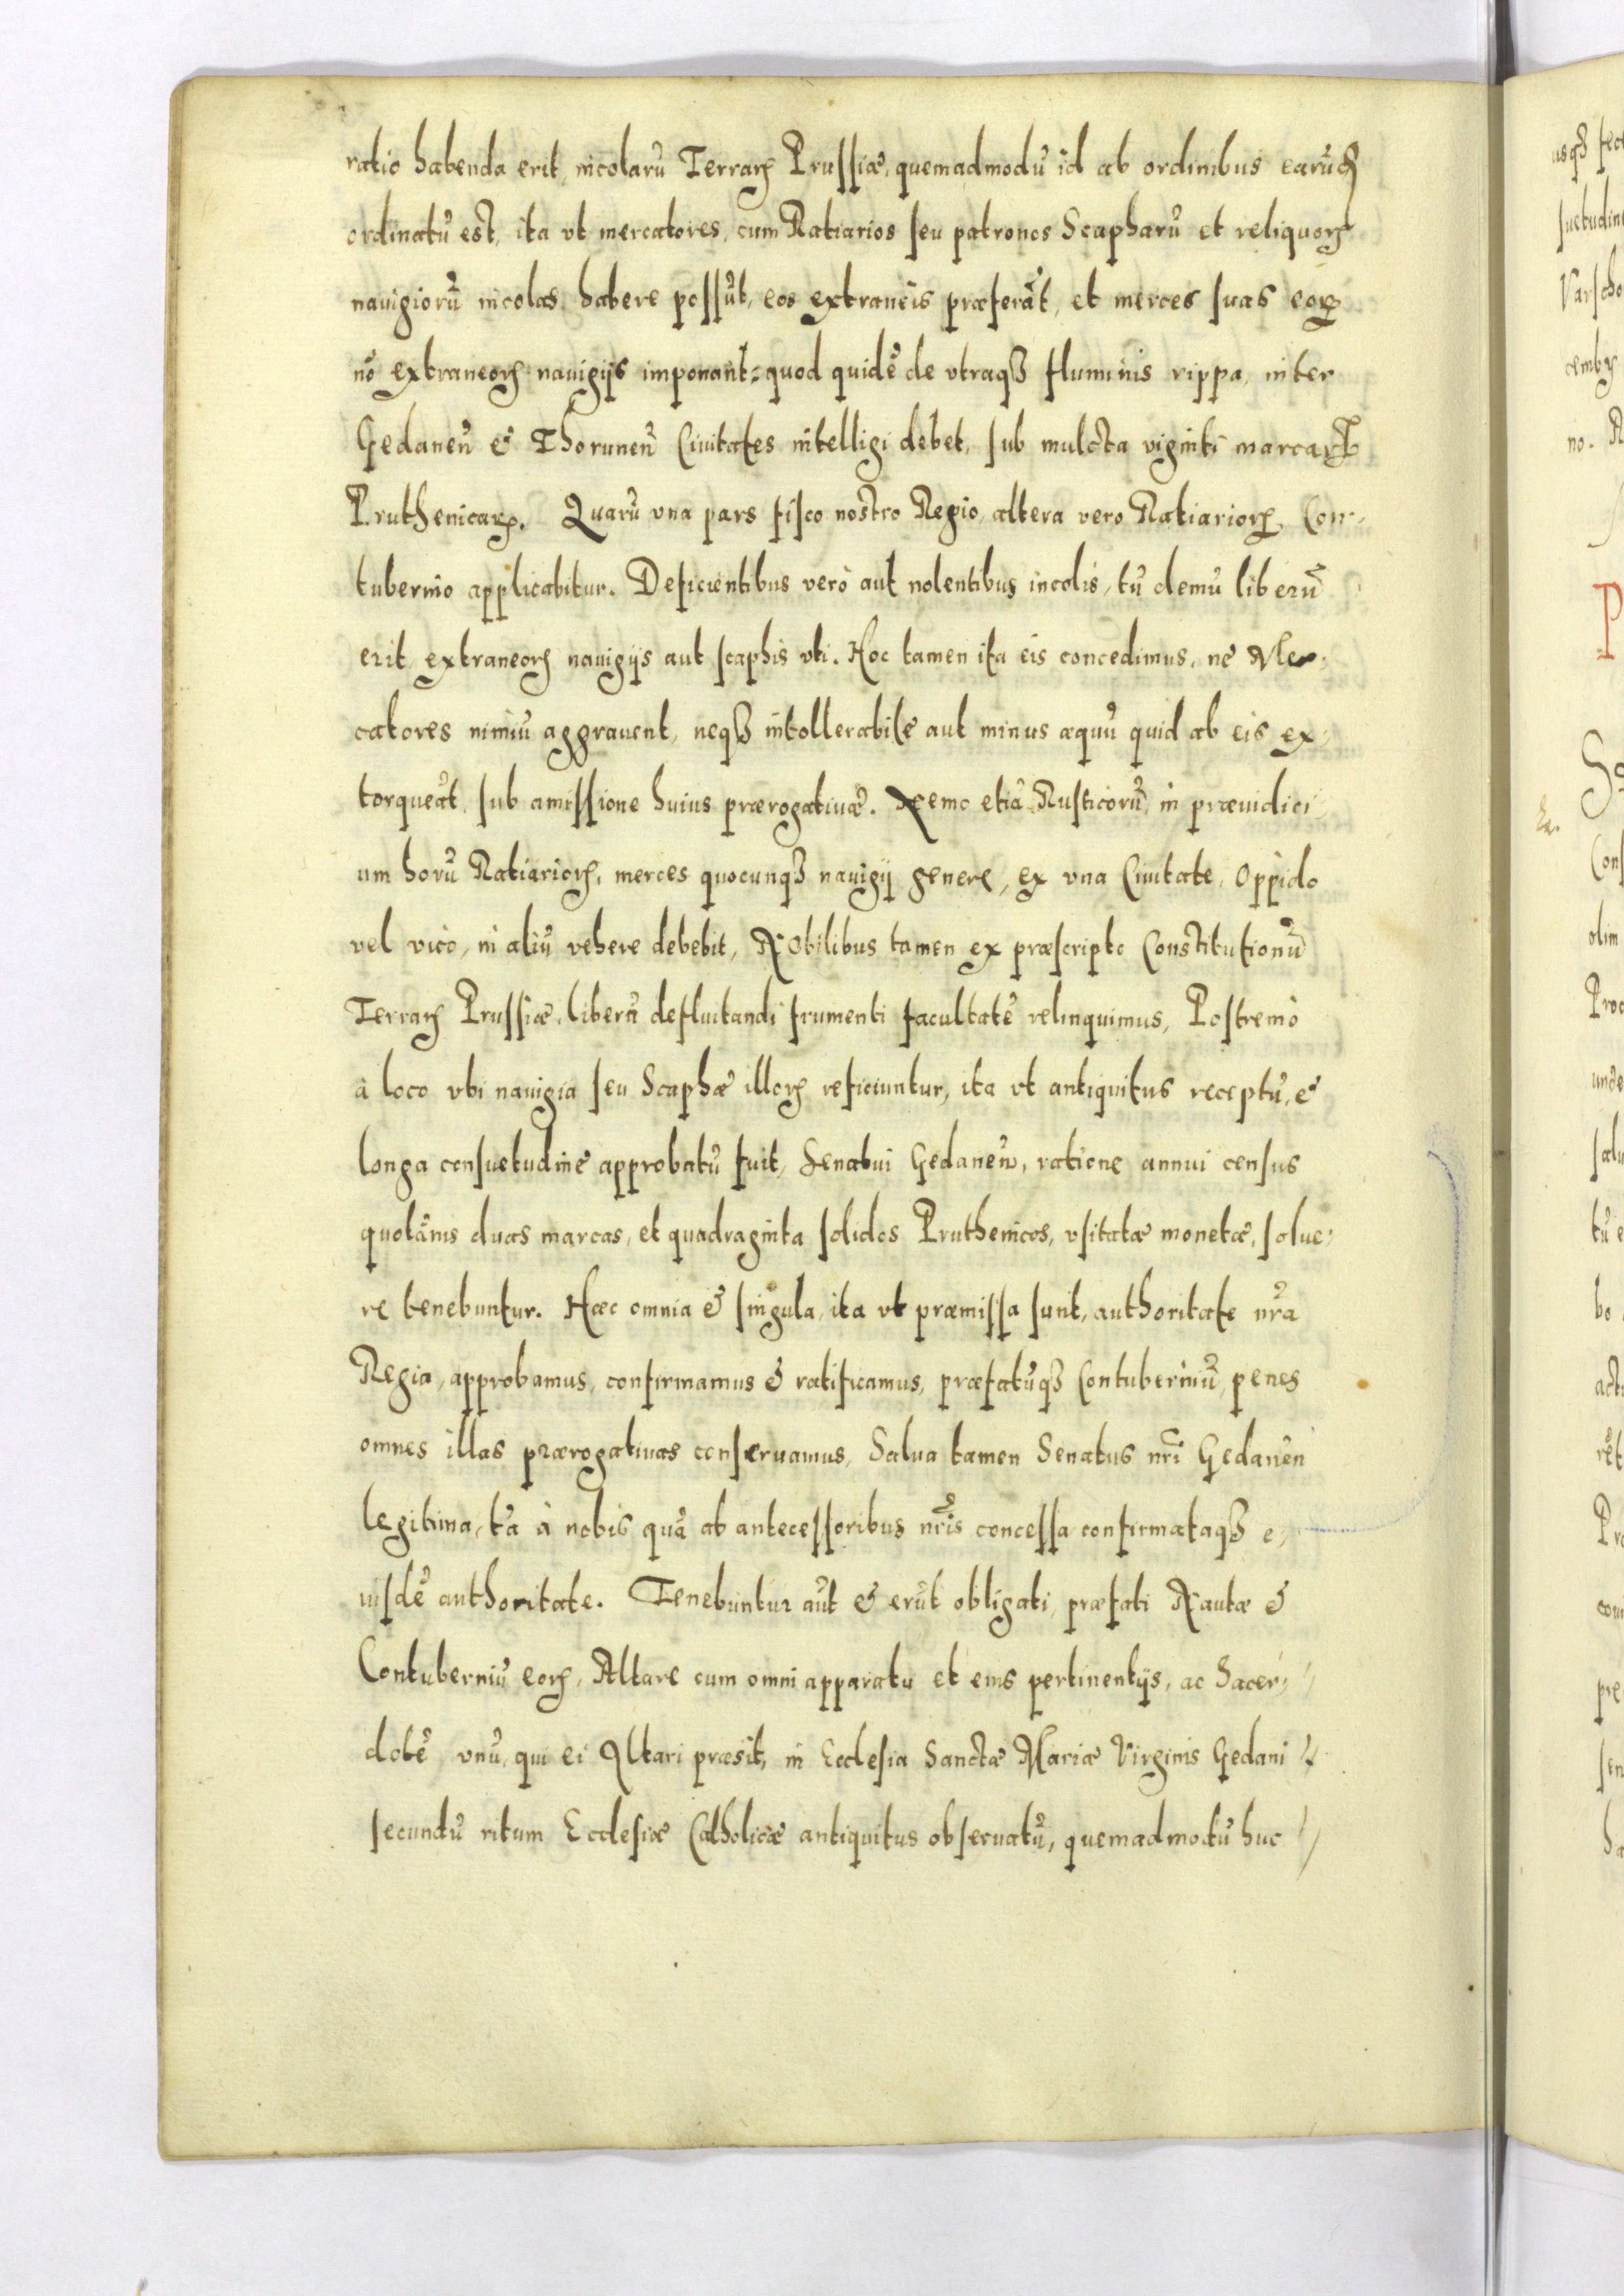 ratio habenda erit incolarũ Terrarꝝ Prussiæ, quemadmodũ id ab ordinibus earũdꝫ
ordinatũ est, ita vt mercatores, cum Ratiarios seu patronos Scapharũ et reliquorꝝ
nauigiorũ incolas habere possũt, eos extraneis præferãt, et merces suas eorꝝ
nõ extraneorꝝ nauigijs imponant: quod quidẽ de vtraqꝫ fluminis rippa, inter
Gedaneñ & Thoruneñ Ciuitates intelligi debet, sub mulcta viginti marcarꝝ
Pruthenicarꝝ. Quarũ vna pars fisco nostro Regio, altera vero Ratiariorꝝ Con-
tubernio applicabitur. Deficientibus verò aut nolentibus incolis, tũ demũ liberũ
erit extraneorꝝ nauigijs aut scaphis vti. Hoc tamen ita eis concedimus, ne Mer-
catores nimiũ aggrauent, neqꝫ intollerabilẽ aut minus æquũ quid ab eis ex-
torqueãt, sub amissione huius prærogatiuæ. Nemo etiã Rusticorũ, in præiudici-
um horũ Ratiariorꝝ, merces quocunqꝫ nauigij genere, ex vna Ciuitate, Oppido
vel vico, in aliũ vehere debebit, Nobilibus tamen ex præscripto Constitutionũ
Terrarꝝ Prussiæ, liberã defluitandi frumenti facultatẽ relinquimus, Postremò
à loco vbi nauigia seu Scaphæ illorꝝ reficiuntur, ita vt antiquitus receptũ, &
longa consuetudine approbatũ fuit, Senatui Gedaneñ, ratione annui census
quotãnis duas marcas, et quadraginta solidos Pruthenicos, vsitatæ monetæ, solue-
re tenebuntur. Hæc omnia & singula, ita vt præmissa sunt, authoritate nr̃a
Regia, approbamus, confirmamus & ratificamus, præfatũqꝫ Contuberniũ, penes
omnes illas prærogatiuas conseruamus, Salua tamen Senatus nr̃i Gedanẽn
legitima, tã à nobis quã ab antecessoribus nr̃is concessa confirmataqꝫ e-
iusdẽ authoritate. Tenebuntur aũt & erũt obligati, præfati Nautæ &
Contuberniũ eorꝝ, Altare cum omni apparatu et eius pertinentijs, ac Sacer-
dotẽ vnũ, qui ei Altari præsit, in Ecclesia Sanctæ Mariæ Virginis Gedani
secundũ ritum Ecclesiæ Catholicæ antiquitus obseruatũ, quemadmodũ huc